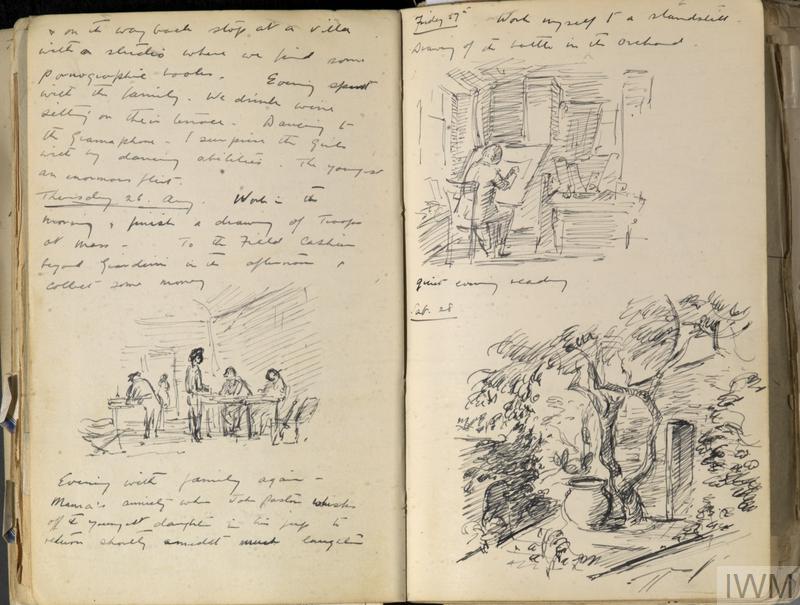 & on the way back stop at a villa
with a studio where we find some
Pornographic books. Evening spent
with the family. We drink wine
sitting on their terrace. Dancing to
the Gramaphone. I surprise the Girls
with my dancing abilities. The youngest
an enormous flirt.
Thursday 26. Aug. Work in the
morning & finish a drawing of Troops
at Mass - To the Field Cashier
beyond Giardini in the afternoon &
collect some money
Evening with family again -
Mama's anxiety when John Gaston whisks
off the youngest daughter in his jeep to
return shortly amidst much laughter
Friday 27th Work myself to a standstill.
Drawing of the battle in the Orchard.
quiet evening reading
Sat. 28
IWM